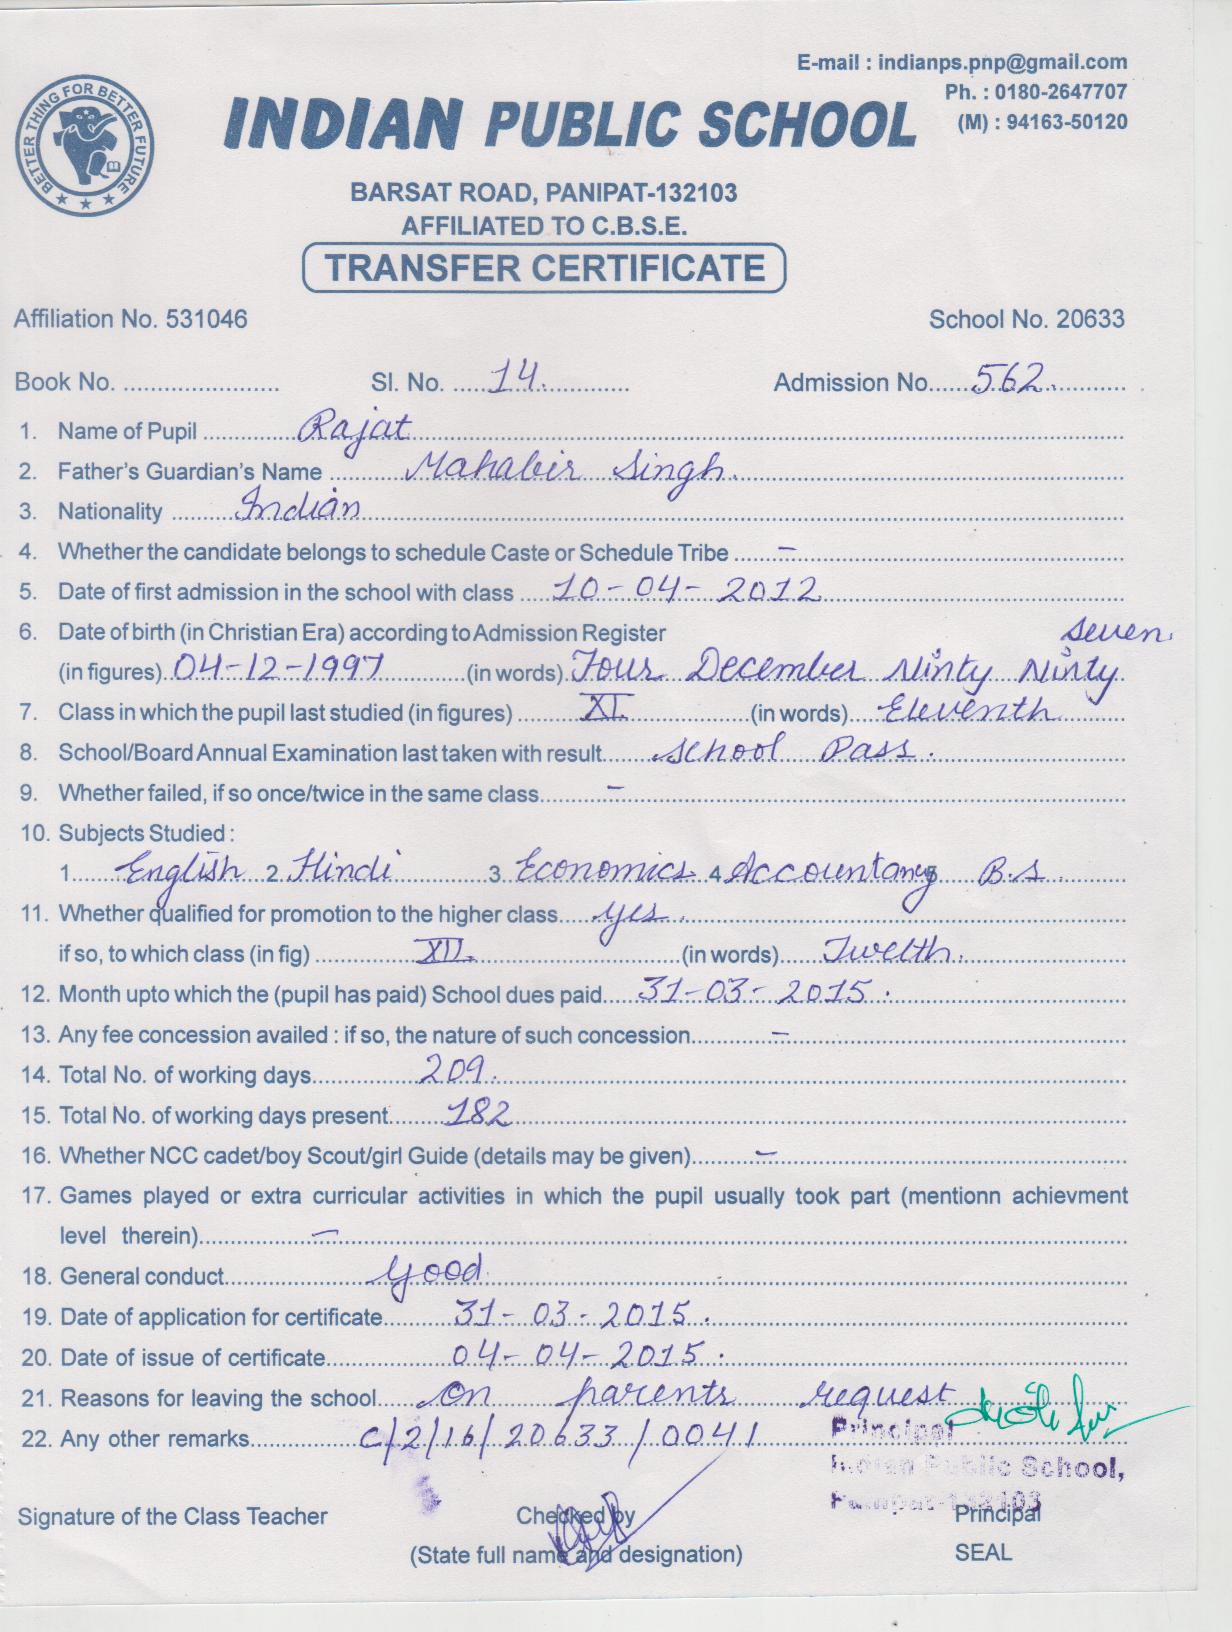 E-mail : indianps.pnp@gmail.com
Ph. : 0180-2647707
(M) : 94163-50120
BETTER THING FOR BETTER FUTURE
INDIAN PUBLIC SCHOOL
BARSAT ROAD, PANIPAT-132103
AFFILIATED TO C.B.S.E.
TRANSFER CERTIFICATE
Affiliation No. 531046 School No. 20633
Book No. ........................ Sl. No. ..... 14. ............. Admission No....... 562. ...........
1. Name of Pupil .............. Rajat
2. Father's Guardian's Name ........... Mahabir Singh.
3. Nationality ......... Indian
4. Whether the candidate belongs to schedule Caste or Schedule Tribe ...... –
5. Date of first admission in the school with class .... 10-04-2012
6. Date of birth (in Christian Era) according to Admission Register Seven.
(in figures) 04-12-1997 .............(in words) Four December Ninty Ninty
7. Class in which the pupil last studied (in figures) ......... XI. ..................(in words).... Eleventh
8. School/Board Annual Examination last taken with result....... School Pass.
9. Whether failed, if so once/twice in the same class.......... –
10. Subjects Studied :
1....... English 2. Hindi 3. Economics 4 Accountancy 5 B.S
11. Whether qualified for promotion to the higher class..... yes.
if so, to which class (in fig) ............... XII. ...............................(in words)...... Twelth.
12. Month upto which the (pupil has paid) School dues paid..... 31-03-2015.
13. Any fee concession availed : if so, the nature of such concession............ –
14. Total No. of working days................ 209.
15. Total No. of working days present........ 182
16. Whether NCC cadet/boy Scout/girl Guide (details may be given).......... –
17. Games played or extra curricular activities in which the pupil usually took part (mentionn achievment
level therein)................. –
18. General conduct...................... Good
19. Date of application for certificate.......... 31-03-2015.
20. Date of issue of certificate.................. 04-04-2015.
21. Reasons for leaving the school..... On parents request
22. Any other remarks................ C/2/16/20633/0041
Principal
Indian Public School,
Panipat-132103
Signature of the Class Teacher Checked by Principal
(State full name and designation) SEAL